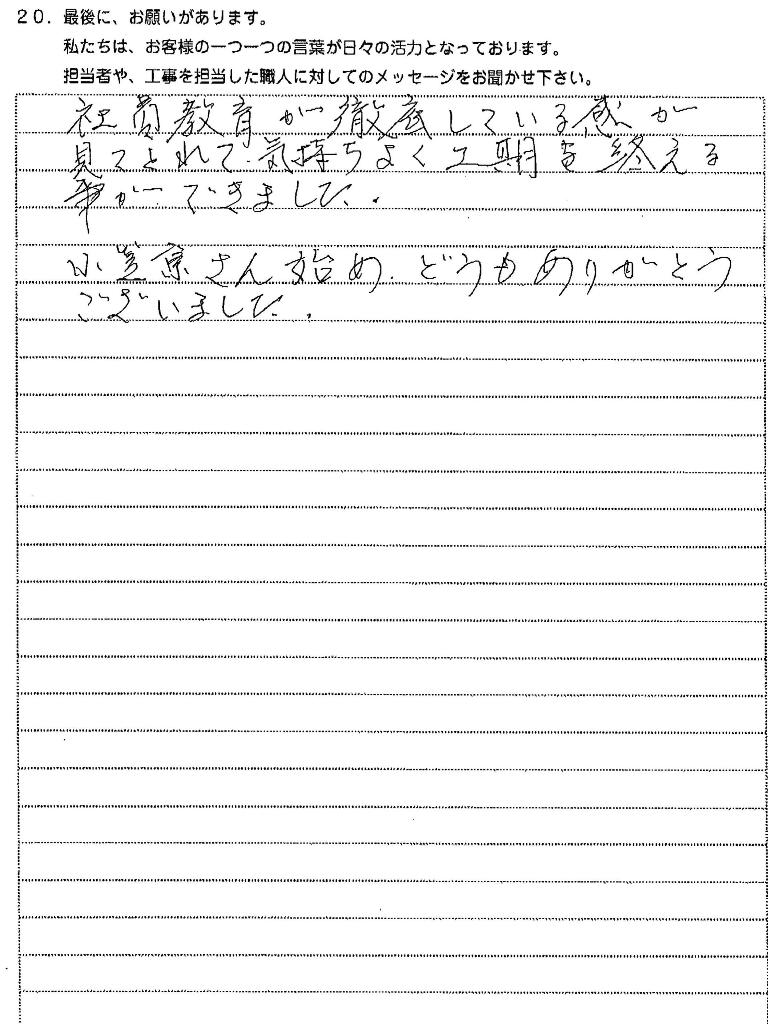 20. 最後に、お願いがあります。
私たちは、お客様の一つ一つの言葉が日々の活力となっております。
担当者や、工事を担当した職人に対してのメッセージをお聞かせ下さい。
社員教育が徹底している感が
見てとれて、気持ちよく工期を終える
事ができました。
小笠原さん始め、どうもありがとう
ございました。